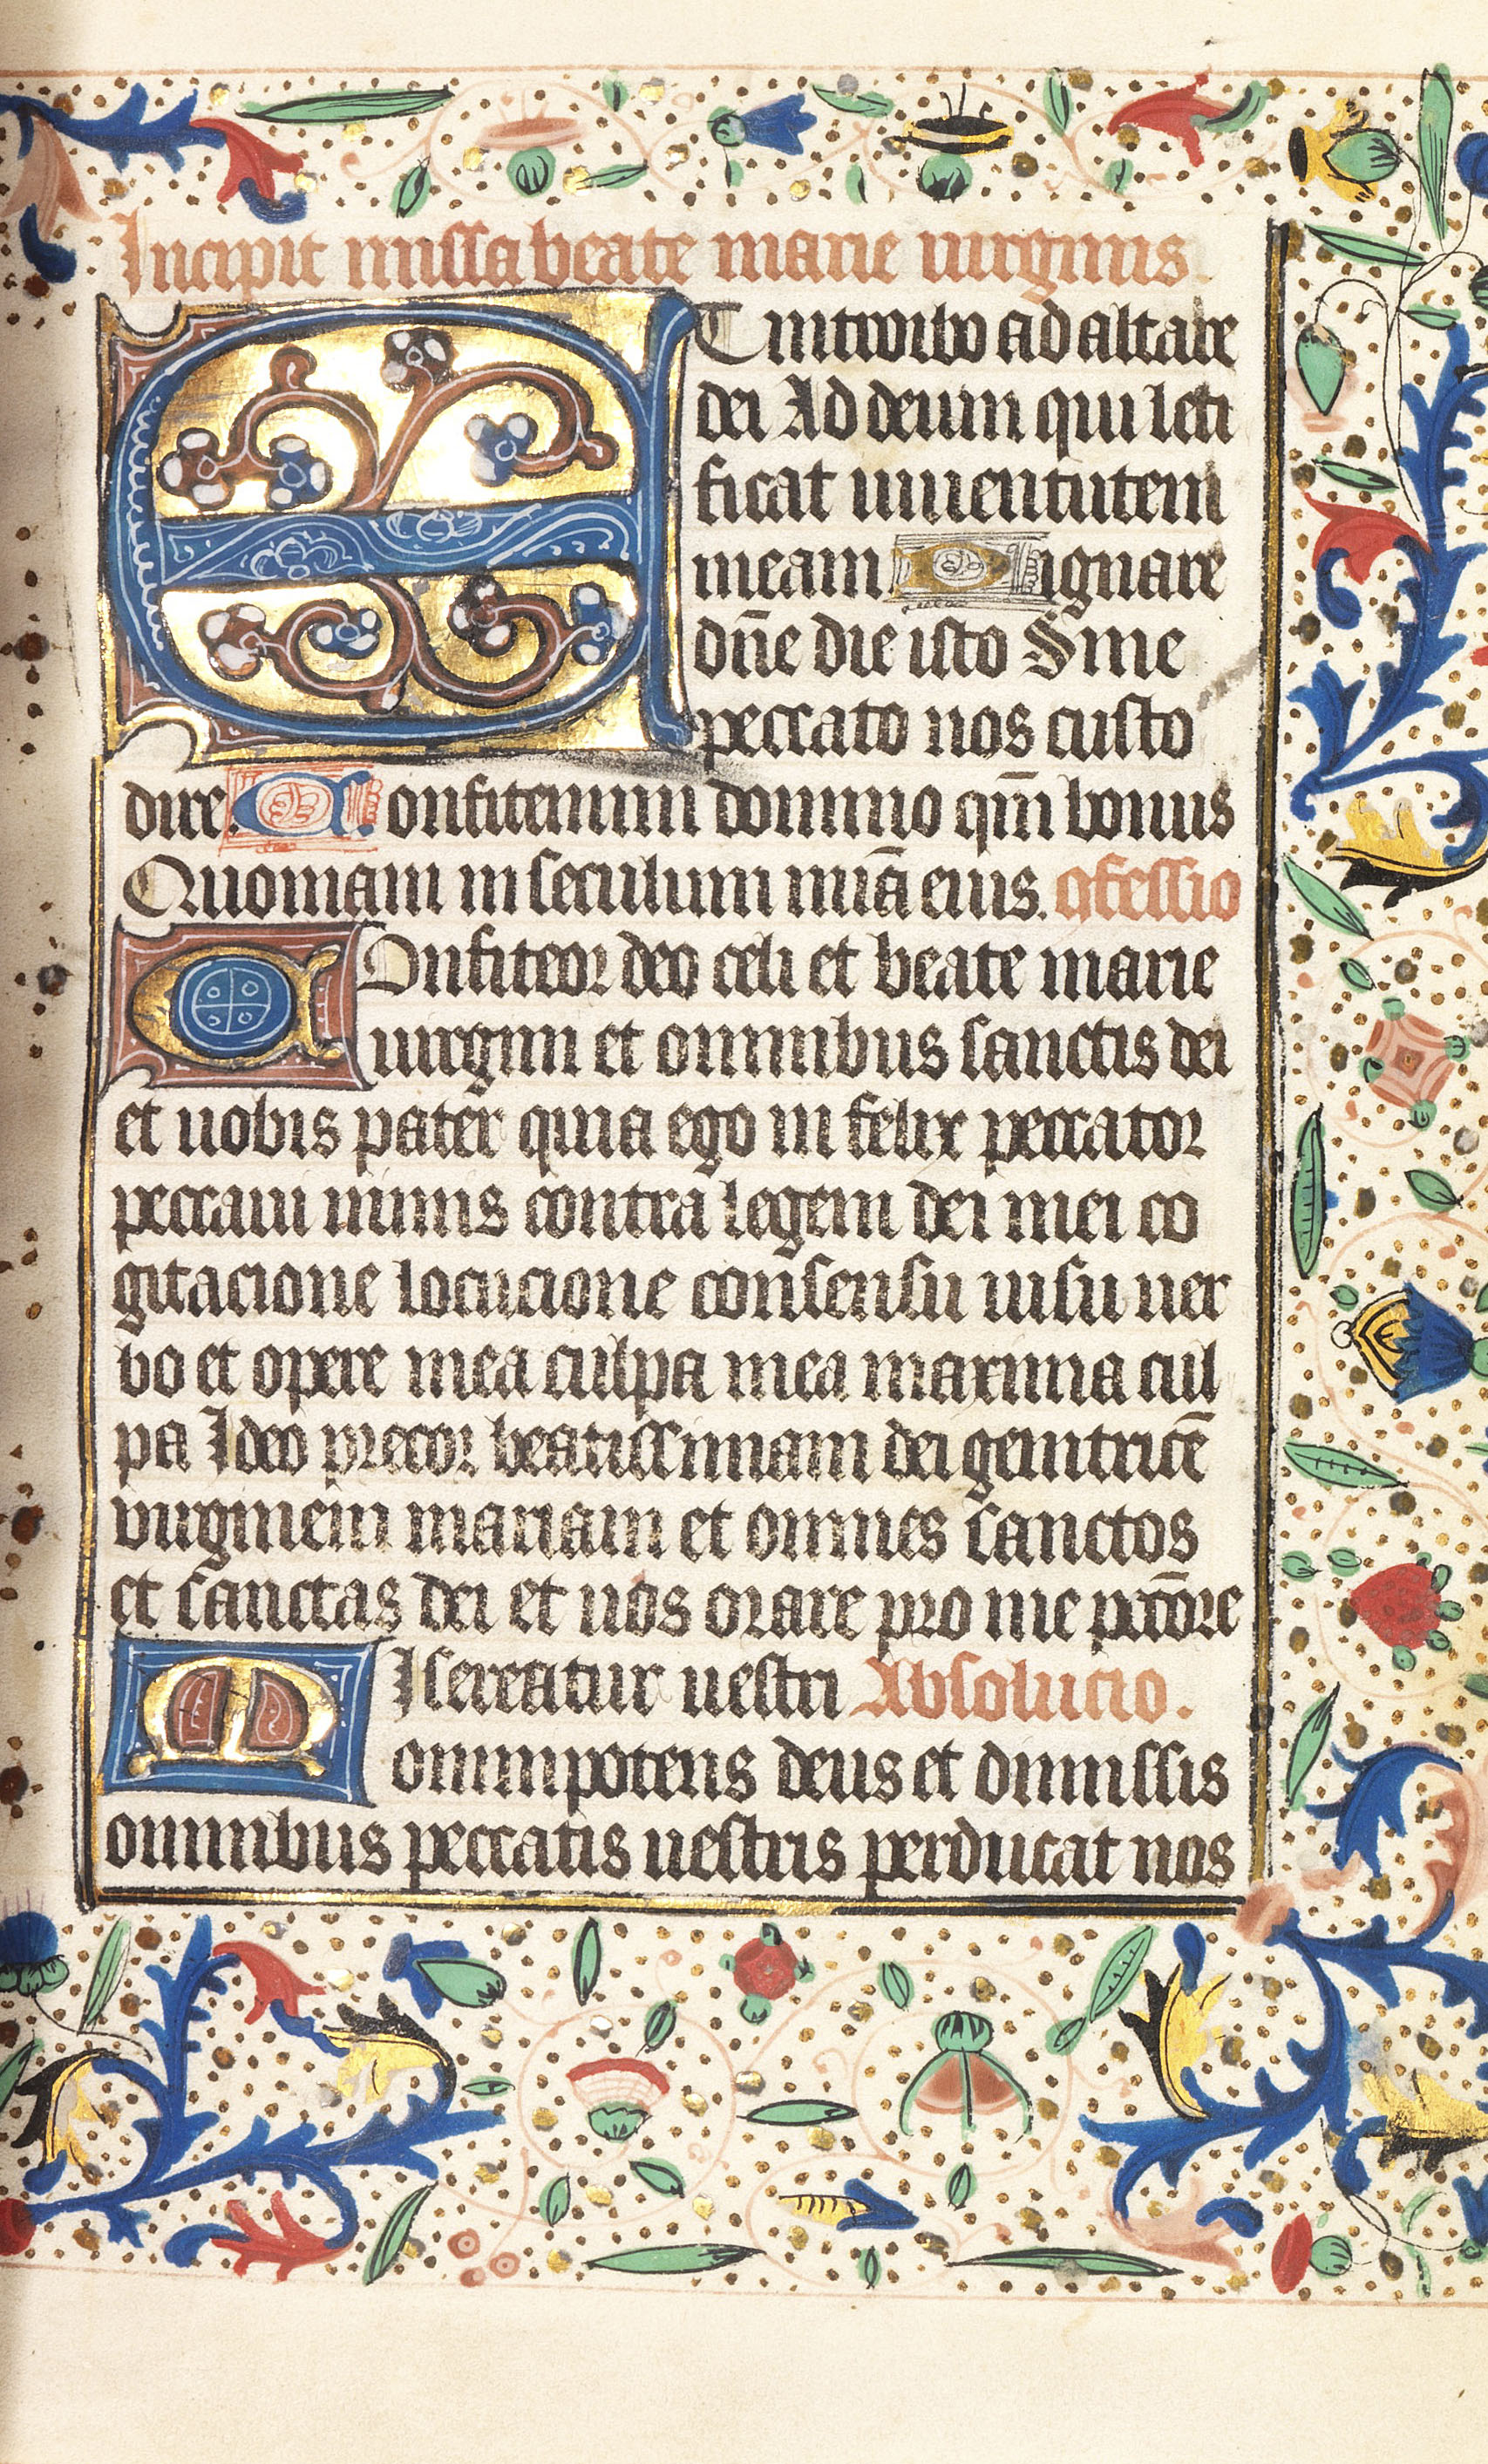 Incipit missa beate marie uirginis.
ET introibo ad altare
dei Ad deum qui leti
ficat iuuentutem
meam Dignare
dn̄e die isto Sine
peccato nos custo
dire. Confitemini domino qm̄ bonus
Quoniam in seculum mīa eius. ꝯfessio
COnfiteor deo celi et beate marie
uirgini et omnibus sanctis dei
et uobis pater quia ego in felix peccator
peccaui nimis contra legem dei mei co
gitacione locucione consensu uisu uer
bo et opere mea culpa mea maxima cul
pa Ideo precor beatissimam dei genitricē
virginem mariam et omnes sanctos
et sanctas dei et uos orare pro me pctōre
MIsereatur uestri Absolucio.
omnipotens deus et dimissis
omnibus peccatis uestris perducat nos